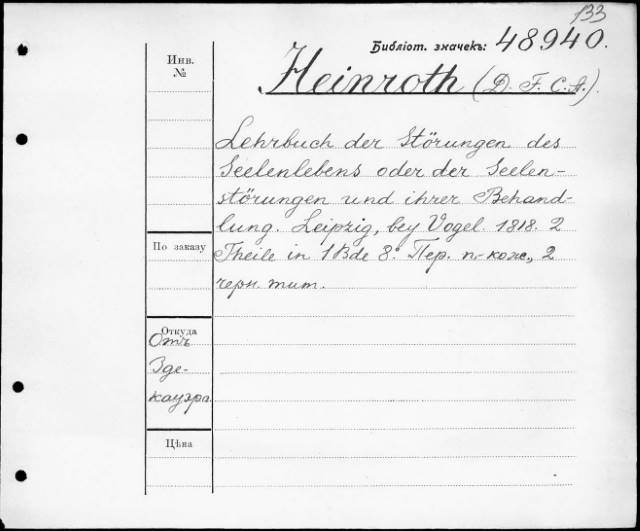 133
Библіот. значекъ: 48940.
Heinroth (D. F. C. A.).
Инв.
№
Lehrbuch der Störungen des
Seelenlebens oder der Seelen-
störungen und ihrer Behand-
lung. Leipzig, bey Vogel. 1818. 2
Theile in 1 Bde 8º Пер. п.-кож., 2
черн. тит.
По заказу
Откуда
Отъ
Зде-
кауэра
Цѣна